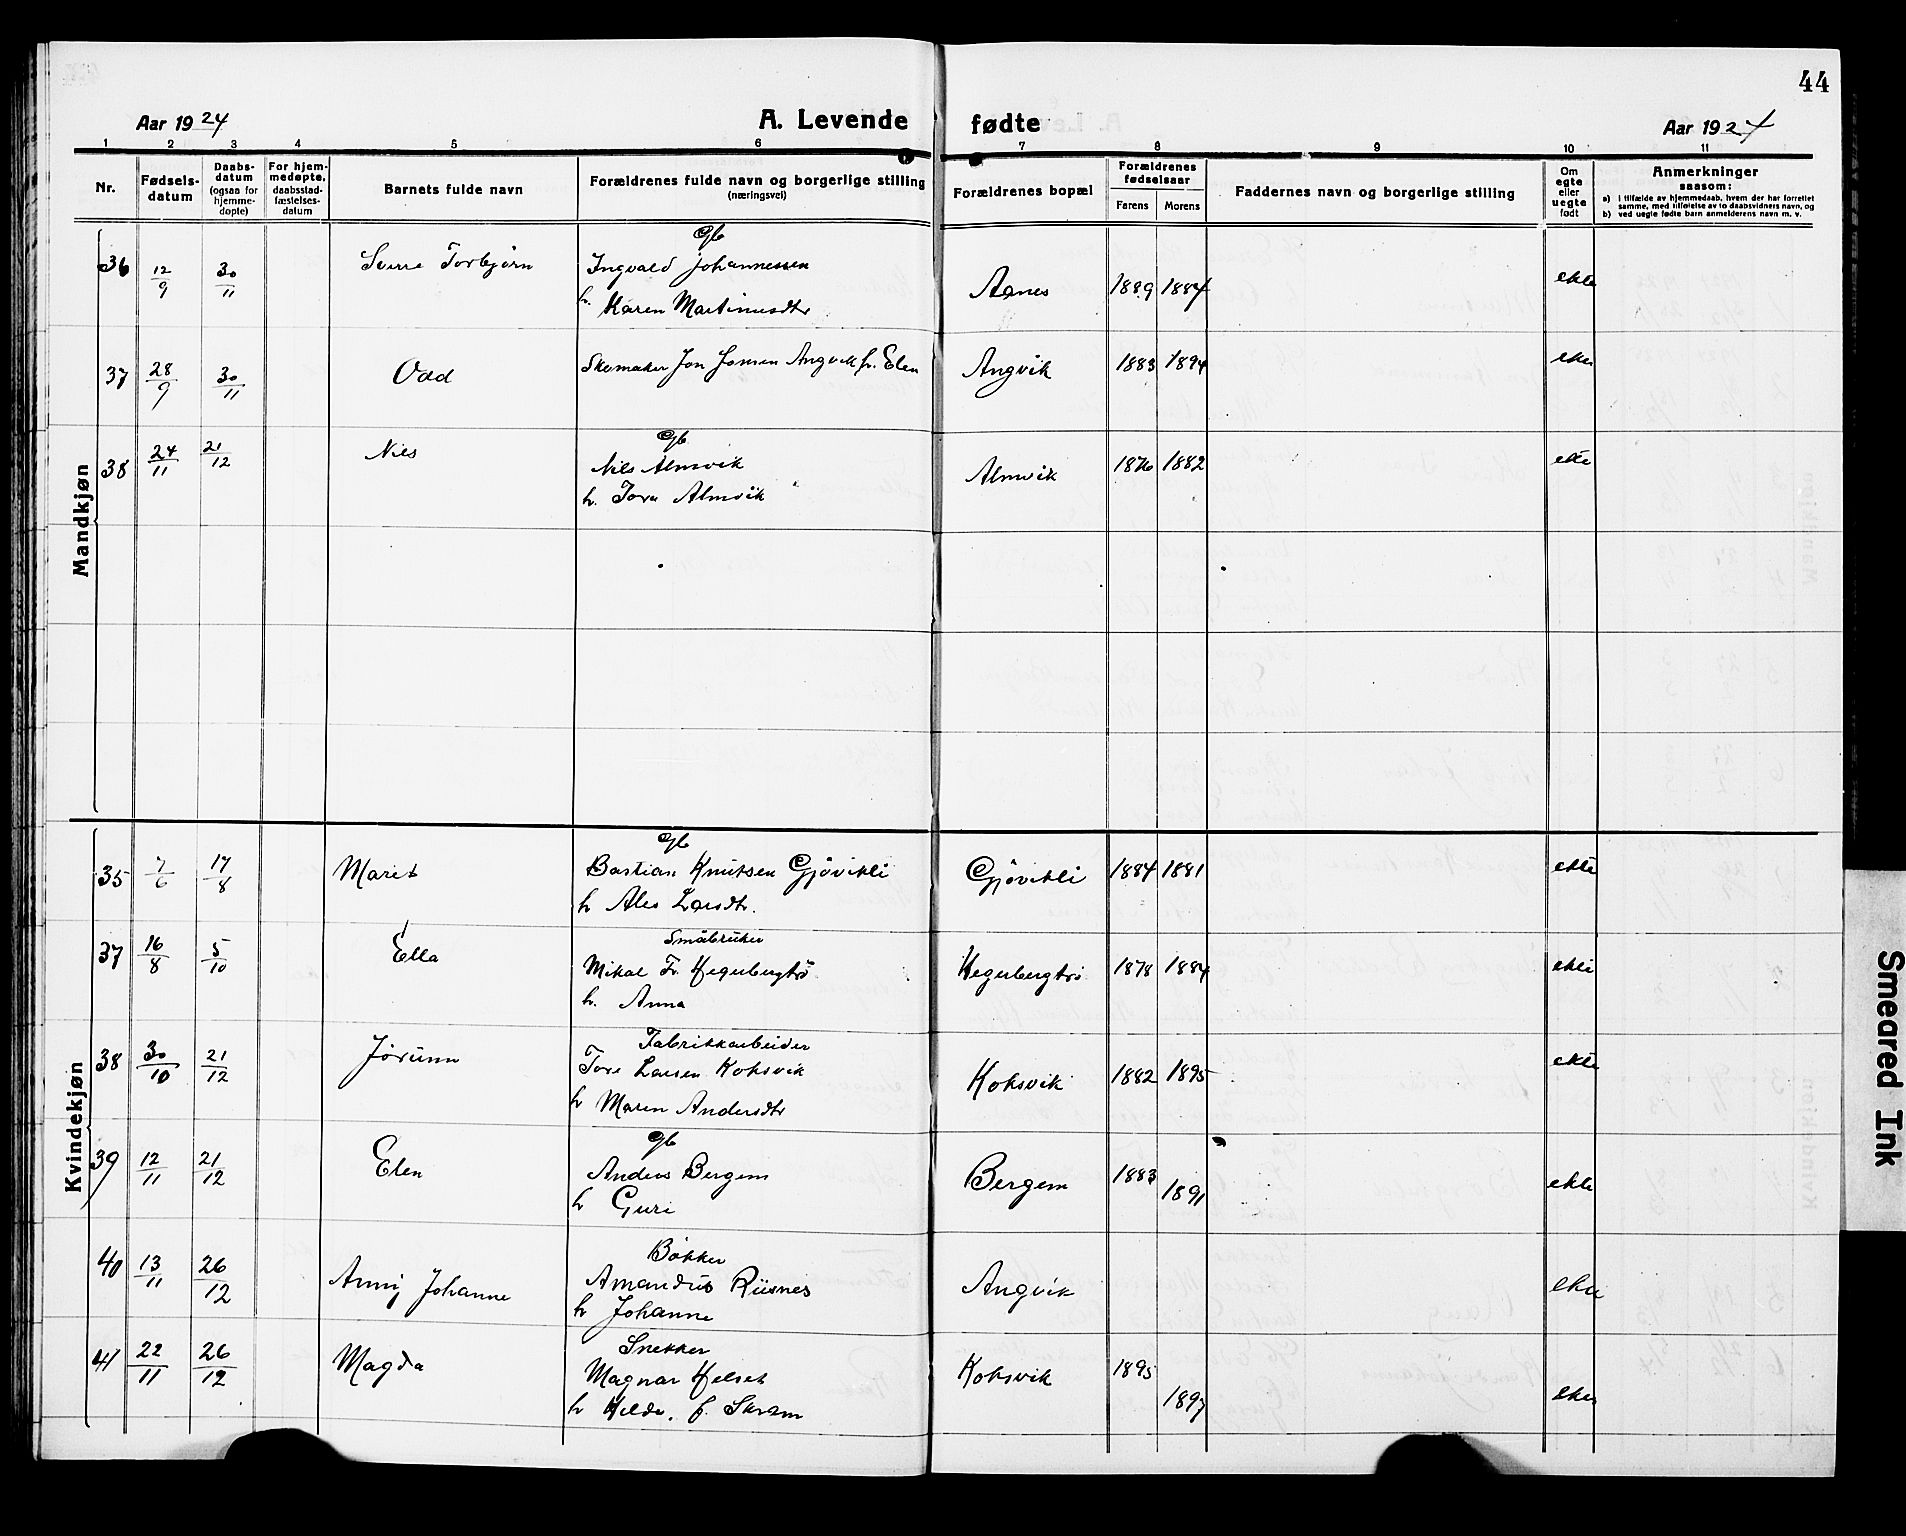 44
Aar 1924
A. Levende fødte
Aar 1924
1 2 3 4 5 6 7 8 9 10 11
Nr.
Fødsels-
datum
Daabs-
datum
(ogsaa for
hjemme-
døpte)
For hjem-
medøpte,
daabsstad-
fæstelses-
datum
Barnets fulde navn
Forældrenes fulde navn og borgerlige stilling
(næringsvei)
Forældrenes bopæl
Forældrenes
fødselsaar
Farens Morens
Faddernes navn og borgerlige stilling
Om
egte
eller
uegte
født
Anmerkninger
saasom:
a) i tilfælde av hjemmedaab, hvem der har forrettet
samme, med tilføielse av to daabsvidners navn, og
b) ved uegte fødte barn anmelderens navn m. v.
Mandkjøn
Gb
36 12/9 30/11 Sverre Torbjørn Ingvald Johannessen
h. Karen Martinusdtr Aanes 1889 1884 ekte
37 28/9 30/11 Odd Skomaker Jon Jonsen Angvik h. Elen Angvik 1883 1894 ekte
Gb
38 24/11 21/12 Nils Nils Almvik
h. Tora Almvik Almvik 1876 1882 ekte
Kvindekjøn
Gb
35 7/6 17/8 Marit Bastian Knutsen Gjøvikli
h Ales Larsdtr. Gjøvikli 1884 1881 ekte
Småbruker
37 16/8 5/10 Ella Mikal Fr. Hegerbergtrø
h. Anna Hegerbergtrø 1878 1884 ekte
Fabrikkarbeider
38 30/10 21/12 Jørunn Tore Larsen Koksvik
h Maren Andersdtr Koksvik 1882 1895 ekte
Gb
39 12/11 21/12 Elen Anders Bergem
h Guri Bergem 1883 1891 ekte
Bøkker
40 13/11 26/12 Anny Johanne Amandus Riisnes
h Johanne Angvik ekte
Snekker
41 22/11 26/12 Magda Magnar Helset
h Hilda. f. Skram Koksvik 1895 1897 ekte
Smeared Ink